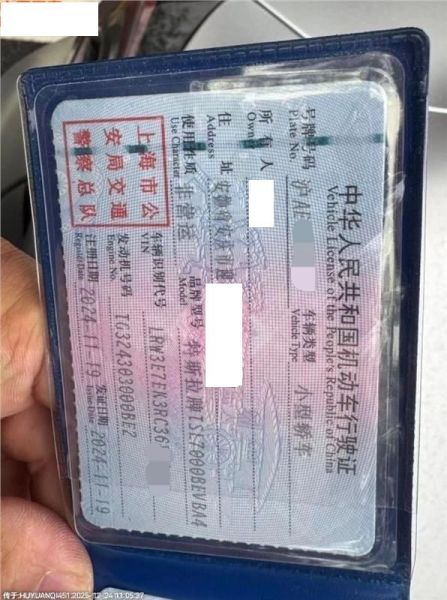 中华人民共和国机动车行驶证
Vehicle License of the People's Republic of China
号牌号码
Plate No.
沪AE
车辆类型
Vehicle Type
小型轿车
所有人
Owner
住址
Address
安徽省安庆市迎
使用性质
Use Character
非营运
品牌型号
Model
特斯拉牌TSL7000BEVBA4
车辆识别代号
VIN
LRW3E7EK3RC36
发动机号码
Engine No.
TG324303000BE2
注册日期
Register Date
2024-11-19
发证日期
Issue Date
2024-11-19
上海市公
安局交通
警察总队
传于:HUYUANQI451:2025-12-24 11:05:37